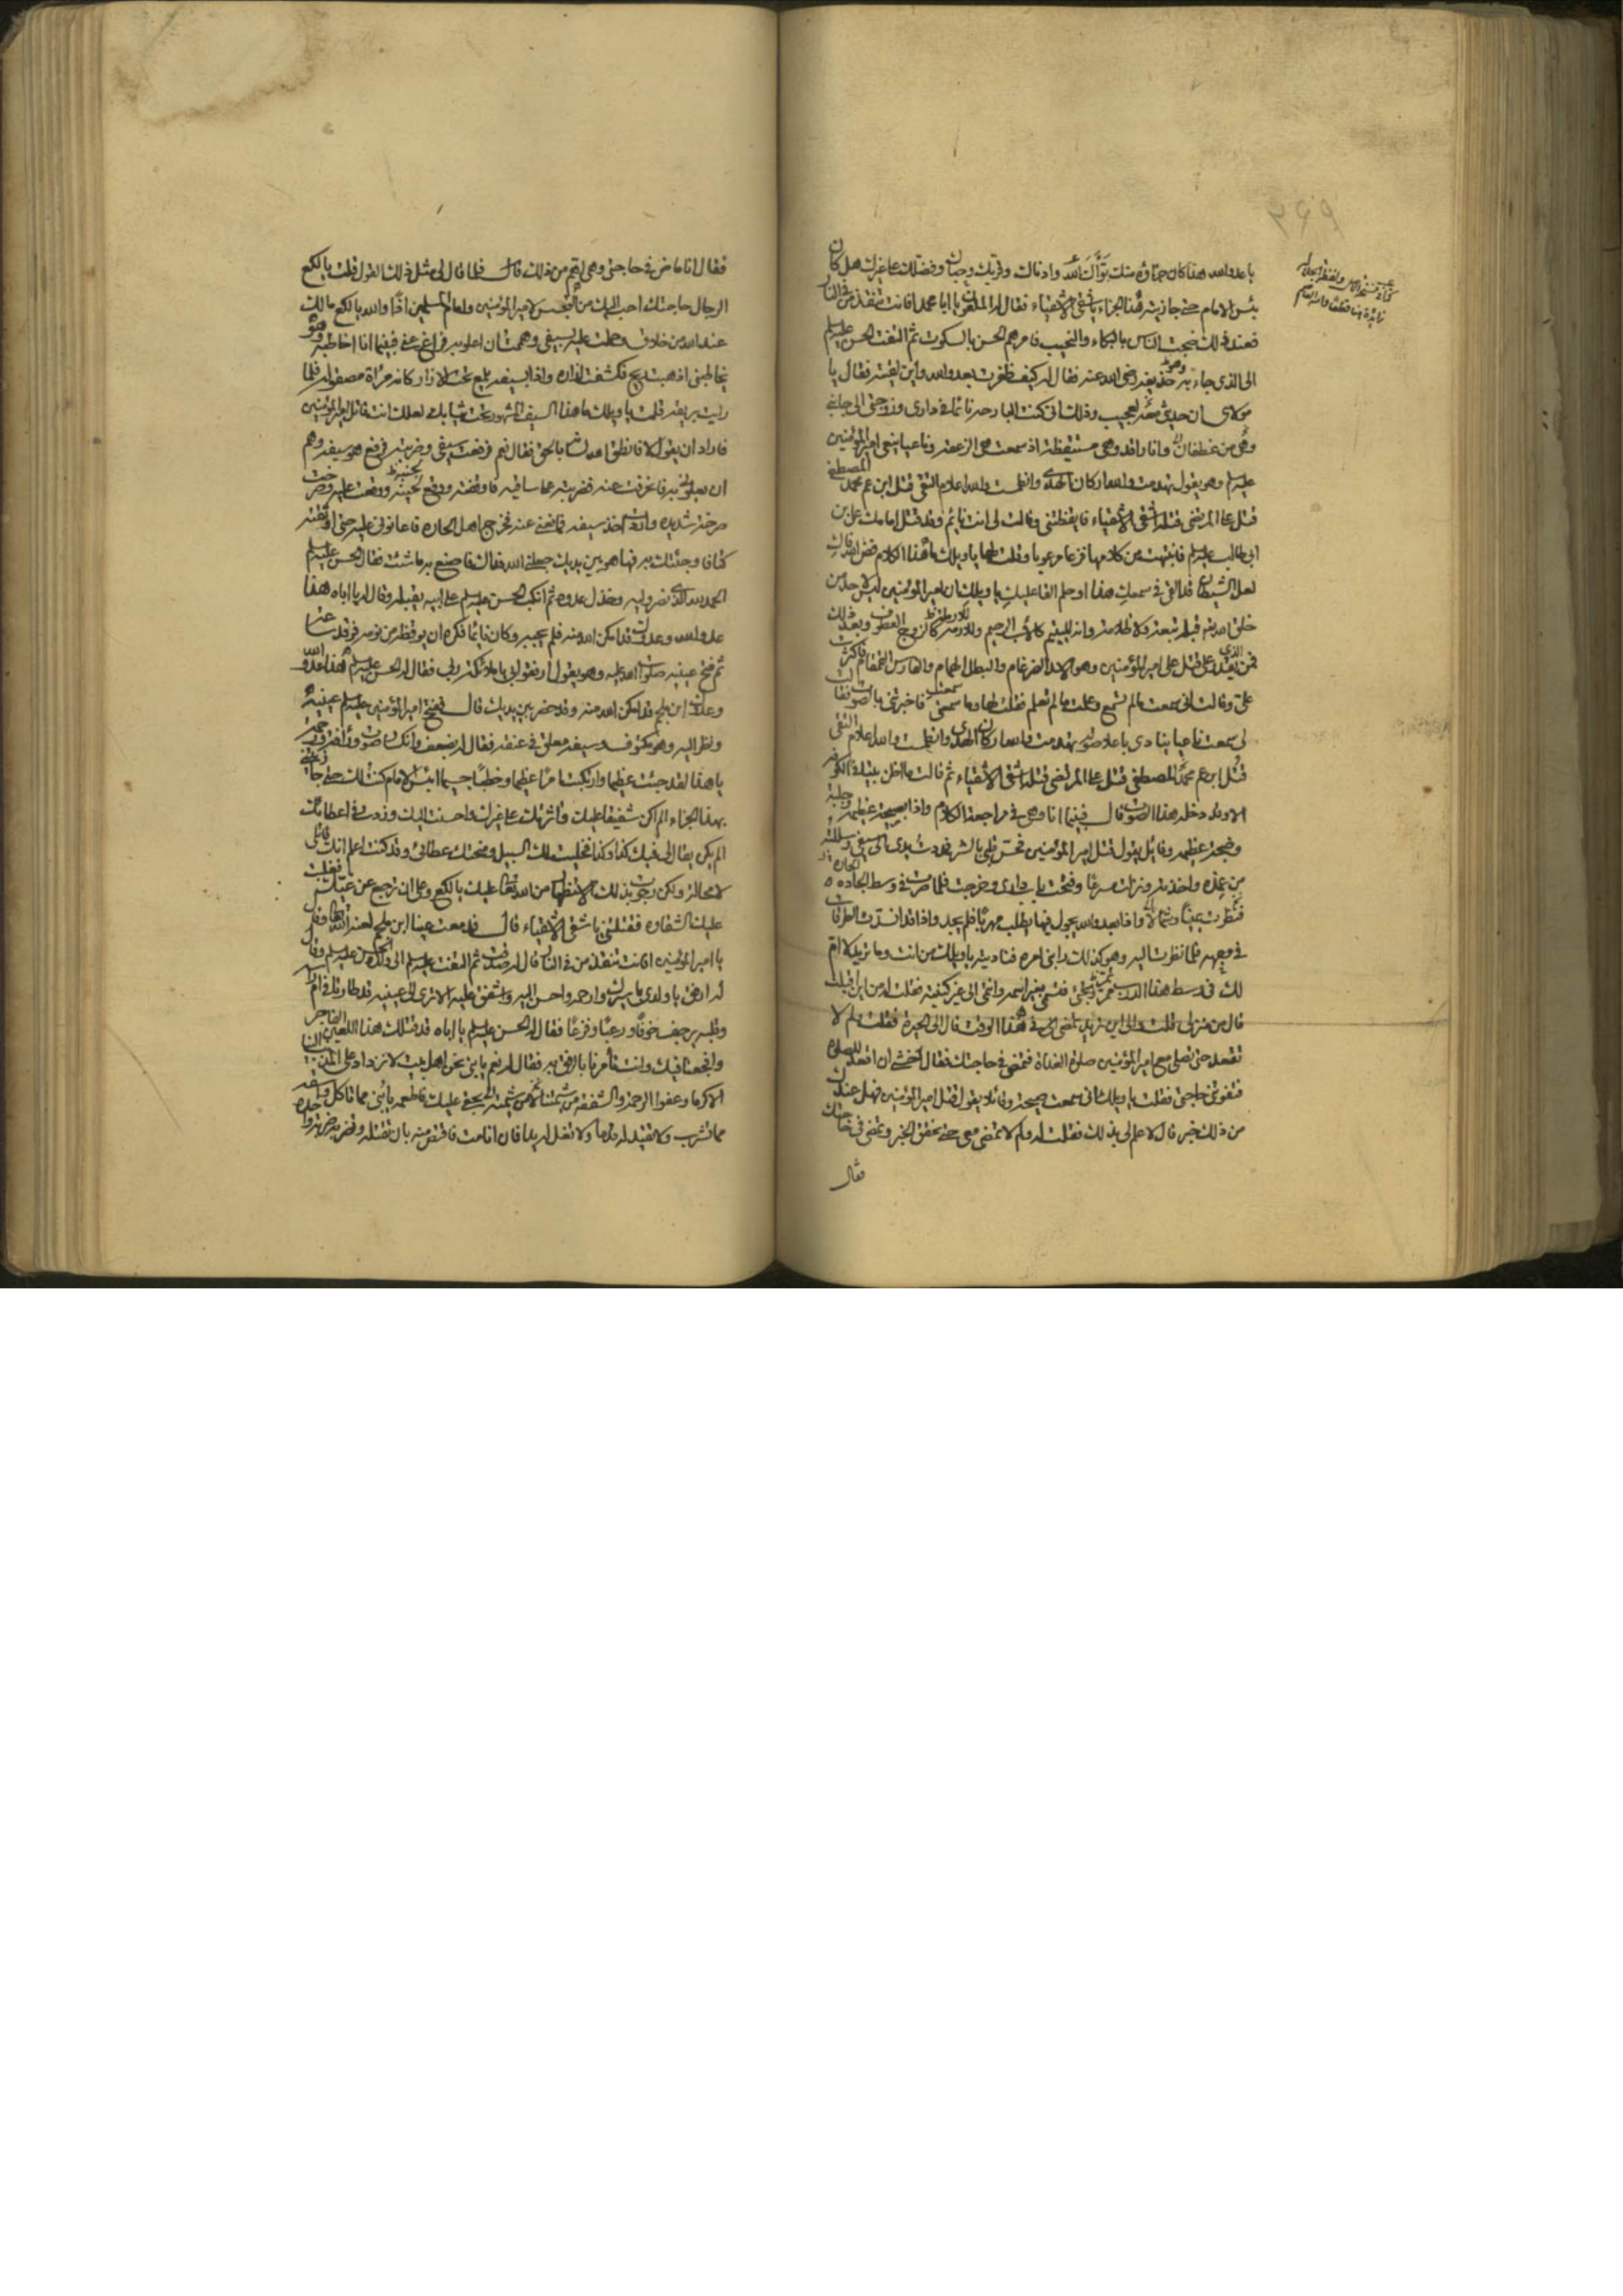 يا عدو الله هذا كان جزاؤه منك بوّأك الله وادناك وقربك وحباك وفضلك على غيرك هل كان
بئس الامام حتى جازيته هذا الجزاء يا شقى الاشقياء فقال له الملعون يا ابا محمد افانت تنقذ من في النار
فعند ذلك ضجت الناس بالبكاء والنحيب فامرهم الحسن بالسكوت ثم التفت الحسن عليه السلم
الى الذى جاء به وهو حذيفه رضى الله عنه فقال له كيف ظفرت بعدو الله واين لقيته فقال يا
مولاى ان حديثى معه لعجيب وذلك انى كنت البارحه نائما في دارى وزوجتى الى جانبى
وهى من غطفان وانا راقد وهى مستيقظة اذ سمعت هى الزعقه وناعيا ينعى امير المؤمنين
عليه السلم وهو يقول تهدمت والله اركان الهدى وانطمست والله اعلام التقى قتل ابن عم محمد المصطفى
قتل على المرتضى قتله اشقى الاشقياء فايقظتنى وقالت لى انت نائم وقد قتل امامك على بن
ابى طالب عليه السلم فانتبهت من كلامها فزعا مرعوبا وقلت لها يا ويلك ما هذا الكلام فض الله فاك
لعل الشيطان قد القى في سمعك هذا او حلم القى عليك يا ويلك ان امير المؤمنين ليس لاحد من
خلق الله تعالى قبله تبعة ولا ظلامة وانه لليتيم كالاب الرحيم وللارملة كالزوج العطوف وبعد ذلك
فمن الذى يقدر على قتل على امير المؤمنين وهو الاسد الضرغام والبطل الهمام والفارس القمقام فاكثرت
على وقالت انى سمعت ما لم تسمع وعلمت ما لم تعلم فقلت لها وما سمعتى فاخبرتنى بالصوت فقالت
لى سمعت ناعيا ينادى باعلا صوته تهدمت والله اركان الهدى وانطمست والله اعلام التقى
قتل ابن عم محمد المصطفى قتل على المرتضى قتله اشقى الاشقياء ثم قالت ما اظن بيتا في الكوفه
الا وقد دخله هذا الصوت قال فبينما انا وهى في مراجعة الكلام واذا بصيحة عظيمه وجلبة
وضجة عظيمه وقائل يقول قتل امير المؤمنين فحس قلبى بالشر فمددت يدى الى سيفى وسللته
من غمده واخذته ونزلت مسرعا وفتحت باب دارى وخرجت فلما صرت في وسط الجاده
فنظرت يمينا وشمالا واذا بعدو الله يجول فيها يطلب مهربا فلم يجد واذا قد انسدت الطرقات
في وجهه فلما نظرت اليه وهو كذلك رابنى امره فناديته يا ويلك من انت وما تريد لا ام
لك في وسط هذا الدرب تمر وتجئ فتسمى بغير اسمه وانتمى الى غير كنيته فقلت له من اين اقبلت
قال من منزلى قلت والى اين تريد تمضى في هذا الوقت قال الى الحيرة فقلت ولم لا
تقعد حتى تصلى مع امير المؤمنين صلوة الغداة وتمضى في حاجتك فقال اخشى ان اقعد للصلوه
فتفوتنى حاجتى فقلت يا ويلك انى سمعت صيحة وقائلا يقول قتل امير المؤمنين فهل عندك
من ذلك خبر قال لا علم لى بذلك فقلت له ولم لا تمضى معى حتى تحقق الخبر وتمضى في حاجتك
فقال
فقال انا ماض في حاجتى وهى اهم من ذلك قال فلما قال لى مثل ذلك القول قلت يا لكع
الرجال حاجتك احب اليك من التجسس لامير المؤمنين وامام المسلمين اذا والله يا لكع ما لك
عند الله من خلاق وحملت عليه بسيفى وهممت ان اعلو به فراغ عنى فبينما انا اخاطبه وهو
يخاطبنى اذ هبت ريح فكشفت ازاره واذا بسيفه يلمع تحت الازار كانه مرآة مصقوله فلما
رايت بريقه قلت يا ويلك ما هذا السيف المشهور تحت ثيابك لعلك انت قاتل امير المؤمنين
فاراد ان يقول لا فانطق الله لسانه بالحق فقال نعم فرفعت سيفى وضربته فرفع هو سيفه وهم
ان يعلونى به فانحرفت عنه فضربته على ساقيه فاوقفته ووقع لحينه ووقعت عليه وصرخت
صرخة شديده واردت اخذ سيفه فمانعنى عنه فخرج اهل الحاره فاعانونى عليه حتى اوثقته
كتافا وجئتك به فها هو بين يديك جعلنى الله فداك فاصنع به ما شئت فقال الحسن عليه السلم
الحمد لله الذى نصر وليه وخذل عدوه ثم انكب الحسن عليه السلم على ابيه يقبله وقال له يا اباه هذا
عدو الله وعدوك قد امكن الله منه فلم يجيبه وكان نائما فكره ان يوقظه من نومه فرقد ساعة
ثم فتح عينيه صلوات الله عليه وهو يقول ارفقوا بى يا ملائكة ربى فقال له الحسن عليه السلم هذا عدو الله
وعدوك ابن ملجم قد امكن الله منه وقد حضر بين يديك قال ففتح امير المؤمنين عليه السلم عينيه
ونظر اليه وهو مكتوف وسيفه معلق في عنقه فقال له بضعف وانكسار صوت ورأفة ورحمة
يا هذا لقد جئت عظيما وارتكبت امرا عظيما وخطبا جسيما ابئس الامام كنت لك حتى جازيتنى
بهذا الجزاء الم اكن شفيقا عليك واثرتك على غيرك واحسنت اليك وزدت في اعطائك
الم يكن يقال لى فيك كذا وكذا فخليت لك السبيل ومنحتك عطائى وقد كنت اعلم انك قاتلى
لا محالة ولكن رجوت بذلك الاستظهار من الله تعالى عليك يا لكع وعل ان ترجع عن غيك فغلبت
عليك الشقاوه فقتلتنى يا شقى الاشقياء قال فدمعت عينا ابن ملجم لعنه الله تعالى وقال
يا امير المؤمنين افانت تنقذ من في النار قال له صدقت ثم التفت عليه السلم الى ولده الحسن عليه السلم وقال
له ارفق يا ولدى باسيرك وارحمه واحسن اليه واشفق عليه الا ترى الى عينيه قد طارتا في ام راسه
وقلبه يرجف خوفا ورعبا وفزعا فقال له الحسن عليه السلم يا اباه قد قتلك هذا اللعين الفاجر
وافجعنا فيك وانت تأمرنا بالرفق به فقال له نعم يا بنى نحن اهل بيت لا نزداد على المذنب الينا
الا كرما وعفوا الرحمة والشفقه من شيمتنا لا من شيمته بحقى عليك فاطعمه يا بنى مما تاكل واسقه
مما تشرب ولا تقيد له قدما ولا تغل له يدا فان انا مت فاقتص منه بان تقتله وتضربه ضربة واحده